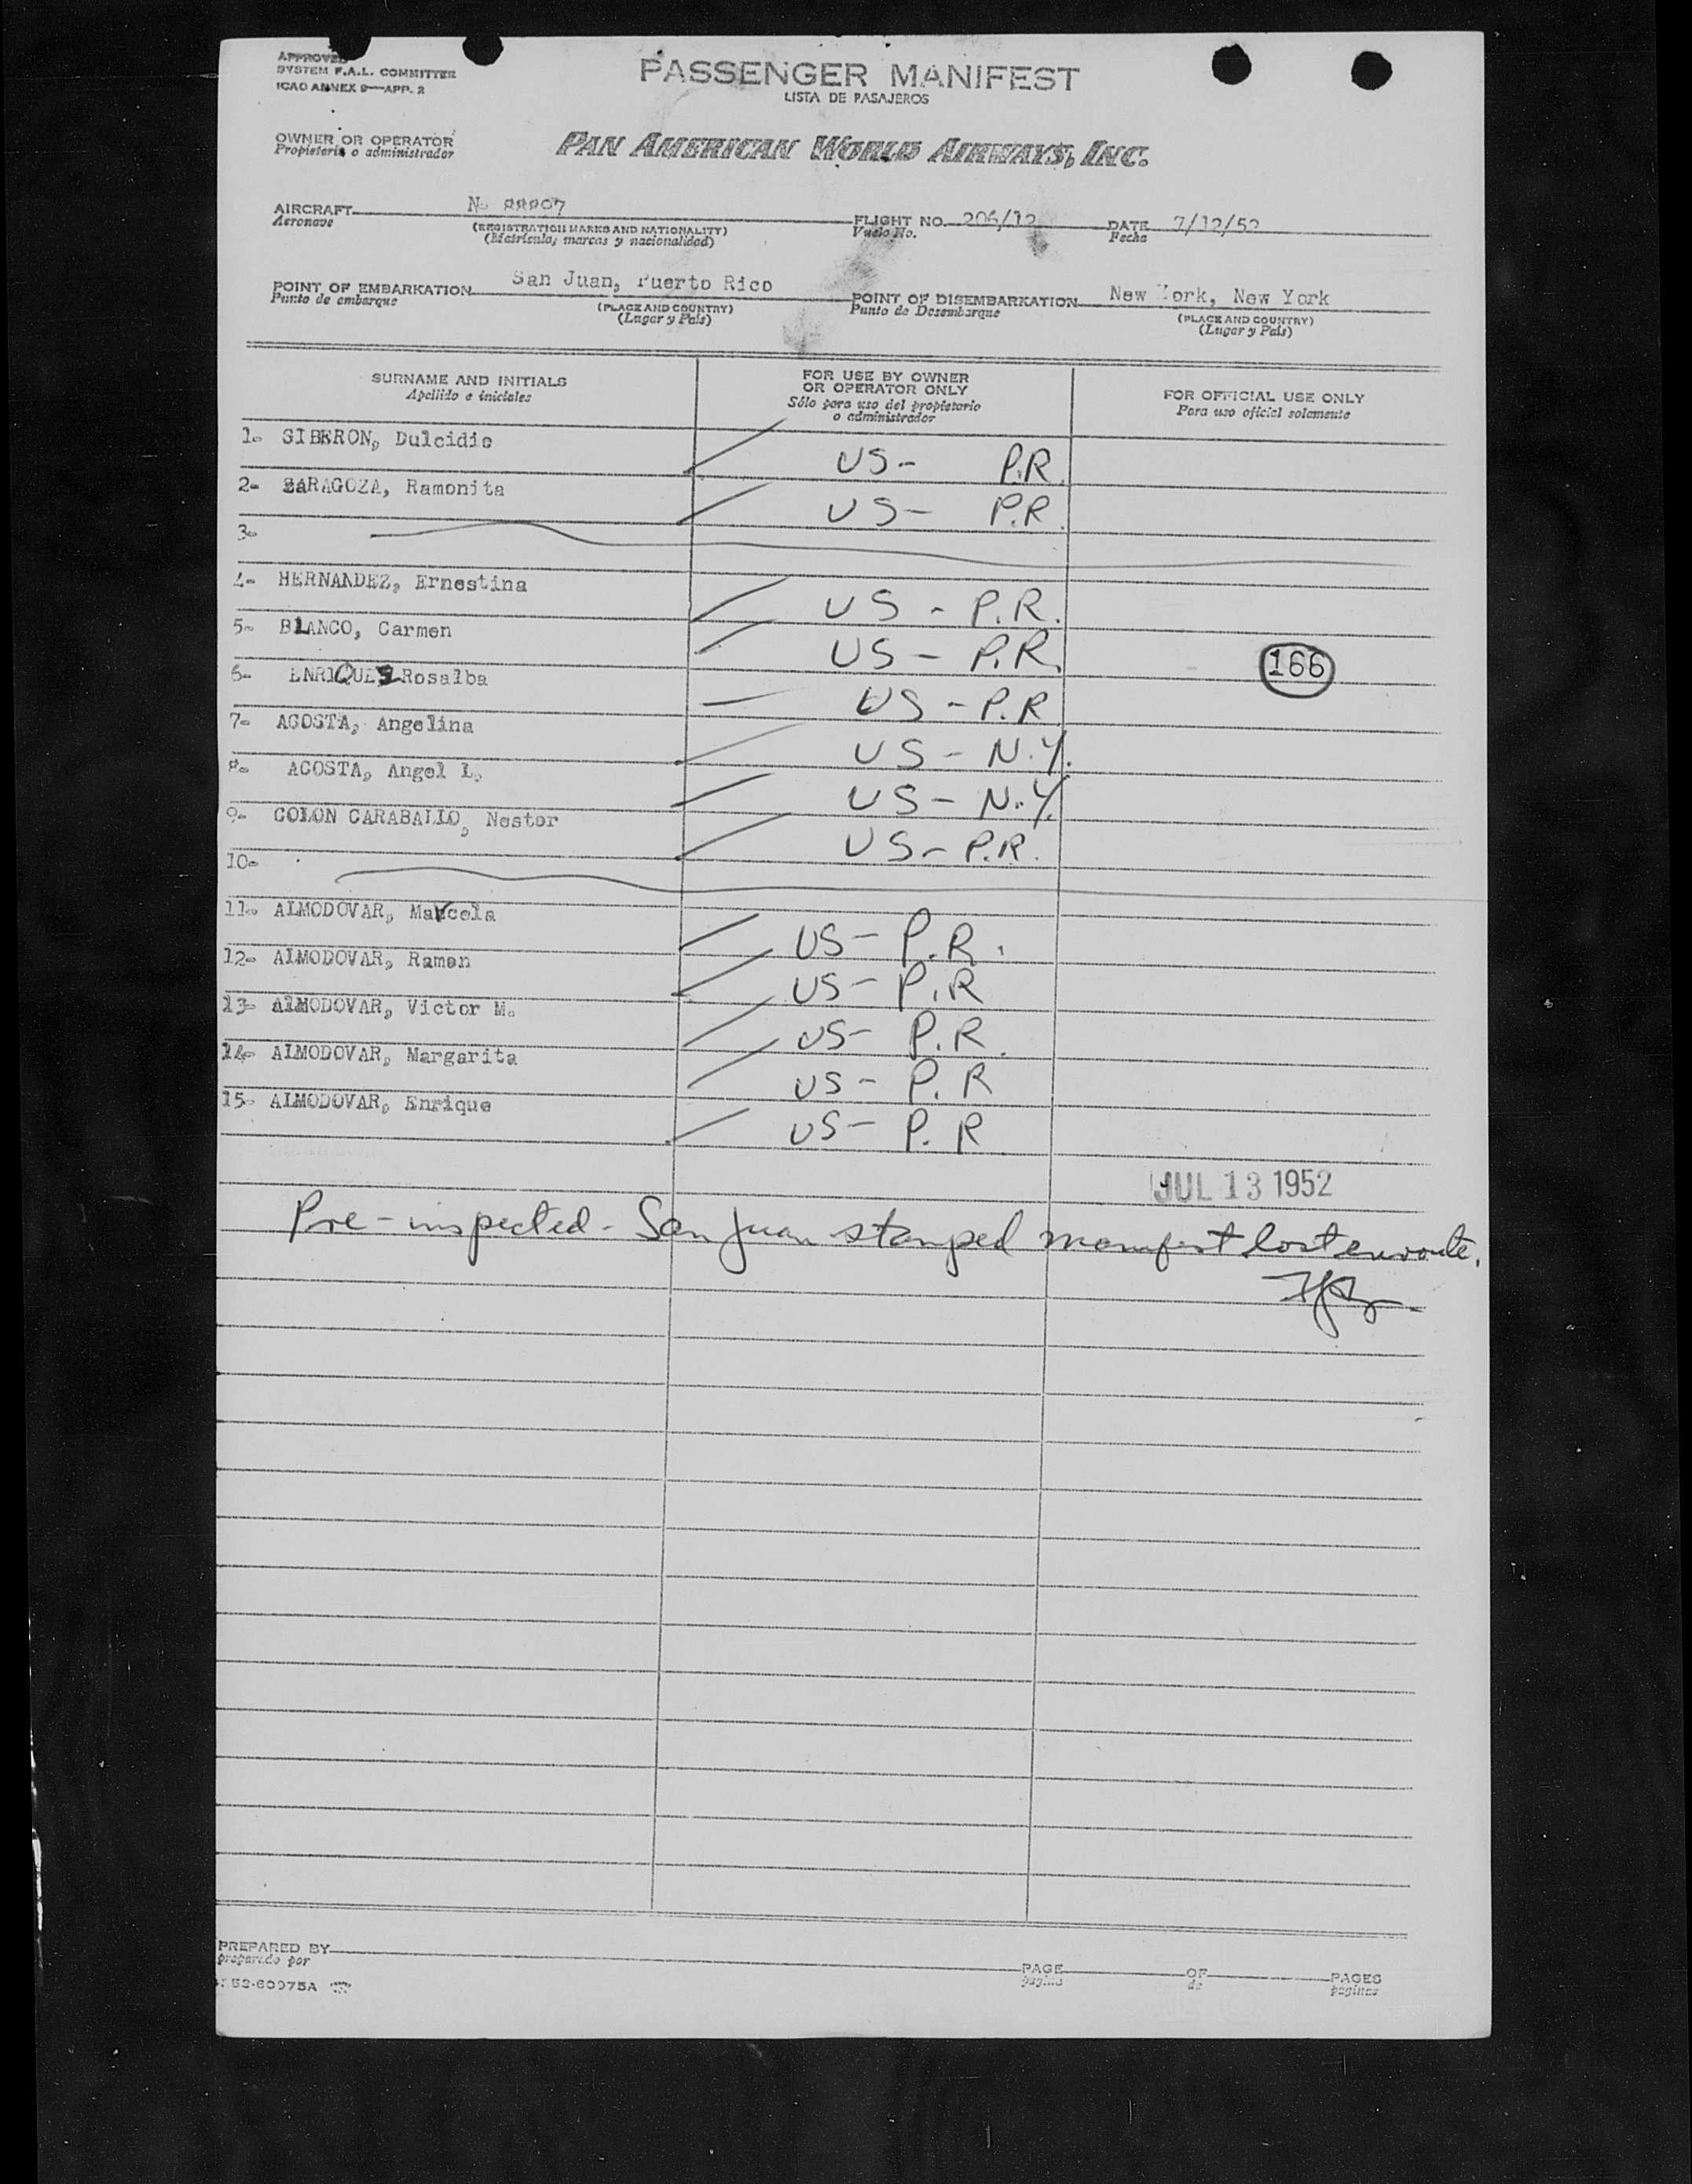 APPROVED
SYSTEM F.A.L. COMMITTEE
ICAO ANNEX 9—APP. 2
PASSENGER MANIFEST
LISTA DE PASAJEROS
OWNER OR OPERATOR
Propietario o administrador
PAN AMERICAN WORLD AIRWAYS, INC.
AIRCRAFT N- 88897
Aeronave
(REGISTRATION MARKS AND NATIONALITY)
(Matrícula, marcas y nacionalidad)
FLIGHT NO. 206/12
Vuelo No.
DATE 7/12/52
Fecha
POINT OF EMBARKATION San Juan, Puerto Rico
Punto de embarque
(PLACE AND COUNTRY)
(Lugar y País)
POINT OF DISEMBARKATION New York, New York
Punto de Desembarque
(PLACE AND COUNTRY)
(Lugar y País)
SURNAME AND INITIALS
Apellido e iniciales
FOR USE BY OWNER
OR OPERATOR ONLY
Sólo para uso del propietario
o administrador
FOR OFFICIAL USE ONLY
Para uso oficial solamente
1- SIBERON, Dulcidio US- P.R.
2- ZARAGOZA, Ramonita US- P.R.
3-
4- HERNANDEZ, Ernestina US - P.R.
5- BLANCO, Carmen US - P.R.
166
6- ENRIQUEZ Rosalba US - P.R
7- ACOSTA, Angelina US - N.Y.
8- ACOSTA, Angel L. US - N.Y.
9- COLON CARABALLO, Nestor US - P.R.
10-
11- ALMODOVAR, Marcela US - P.R.
12- ALMODOVAR, Ramon US - P.R
13- ALMODOVAR, Victor M. US- P.R.
14- ALMODOVAR, Margarita US - P.R
15- ALMODOVAR, Enrique US - P.R
JUL 13 1952
Pre-inspected - San Juan stamped manifest lost enroute.
PREPARED BY
preparado por
PAGE
página
OF
de
PAGES
páginas
52-60975A